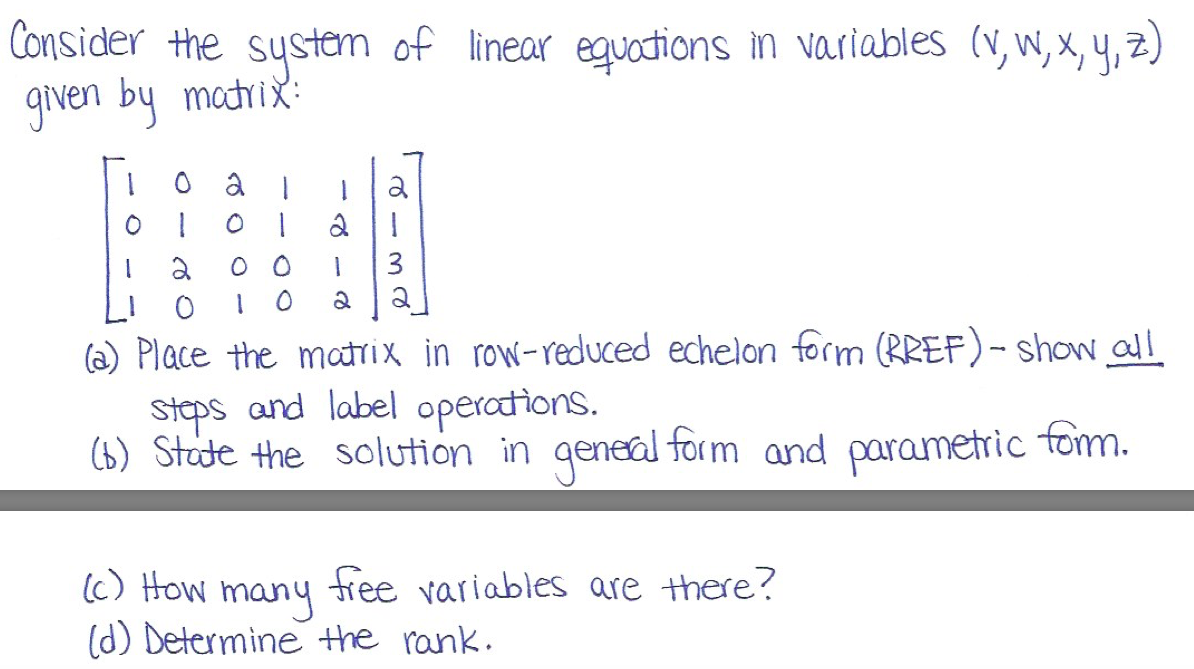 Consider the system of linear equations in variables (v, w, x, y, z)
given by matrix:
1 0 2 1 1 | 2
0 1 0 1 2 | 1
1 2 0 0 1 | 3
1 0 1 0 2 | 2
(a) Place the matrix in row-reduced echelon form (RREF) - show all
steps and label operations.
(b) State the solution in general form and parametric form.
(c) How many free variables are there?
(d) Determine the rank.